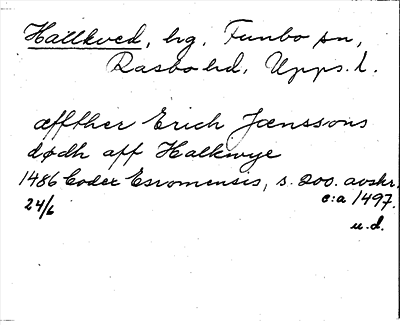 Hallkved, hg, Funbo sn,
Rasbo hd, Upps. l.
æffther Erich Jænssons
dødh aff Halkwye
1486 Codex Esromensis, s. 200. avskr.
24/6 c:a 1497.
u.d.